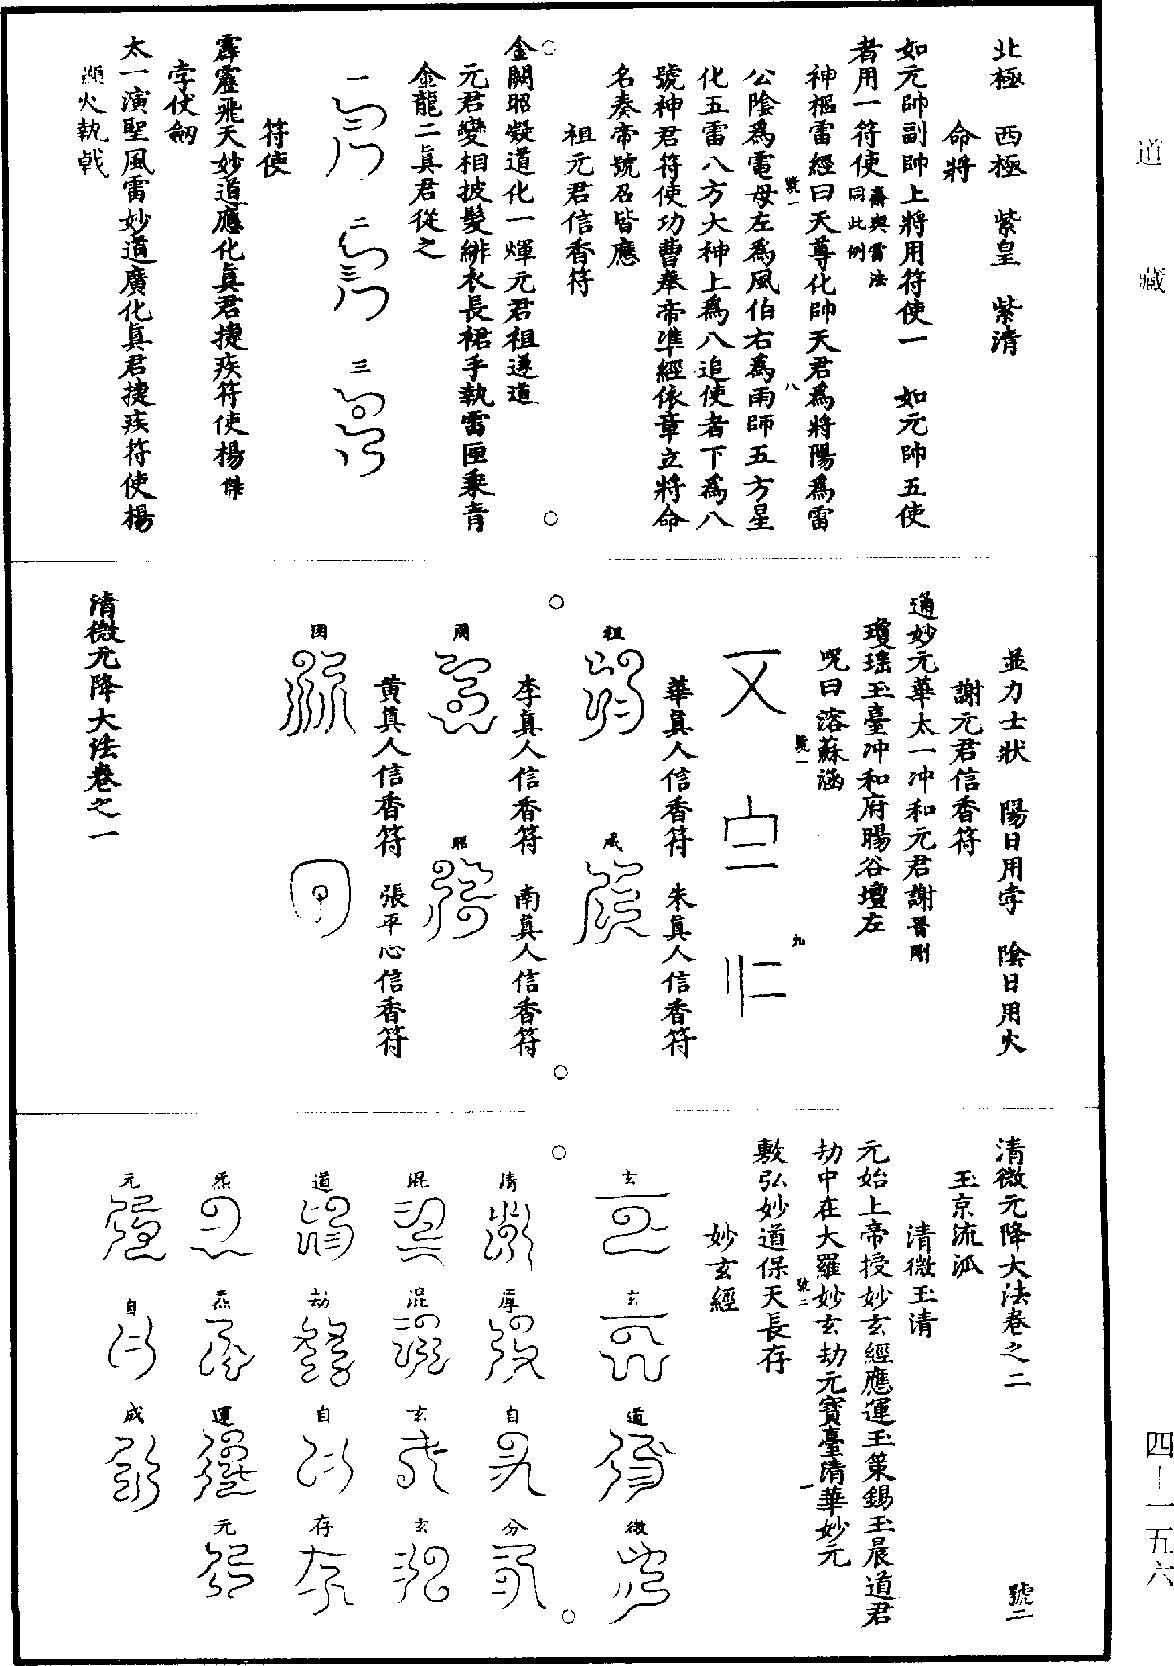 道藏
北極　西極　紫皇　紫清
命將
如元帥副帥上將用符使一　如元帥五使
者用一符使齋與雷法同此例
神樞雷經曰天尊化帥天君為將陽為雷
公陰為電母左為風伯右為雨師五方星
化五雷八方大神上為八追使者下為八
號神君符使功曹奉帝準經依章立將命
名奏帝號召皆應
祖元君信香符
金闕昭凝道化一煇元君祖遂道
元君變相披髮緋衣長裙手執雷匣乘青
金龍二真君從之
一　二　三
符使
霹靂飛天妙道應化真君捷疾符使楊傑
孛使劒
太一演聖風雷妙道廣化真君捷疾符使楊
火執戟
號一　八
並力士狀　陽日用孛　陰日用火
謝元君信香符
通妙元華太一冲和元君謝晉剛
瓊瑤玉臺冲和府暘谷壇左
咒曰溶蘇涵
華真人信香符　朱真人信香符
祖　咸
李真人信香符　南真人信香符
周　昭
黄真人信香符　張平心信香符
因
清微元降大法卷之一
號一　九
清微元降大法卷之二　號二
玉京流派
清微玉清
元始上帝授妙玄經應運玉策錫玉晨道君
劫中在大羅妙玄劫元寶臺清華妙元
敷弘妙道保天長存
妙玄經
玄　玄　道　微
清　厚　自　分
混　混　玄　玄
道　劫　自　存
炁　炁　運　元
元　自　成
號二　一
四－一五六